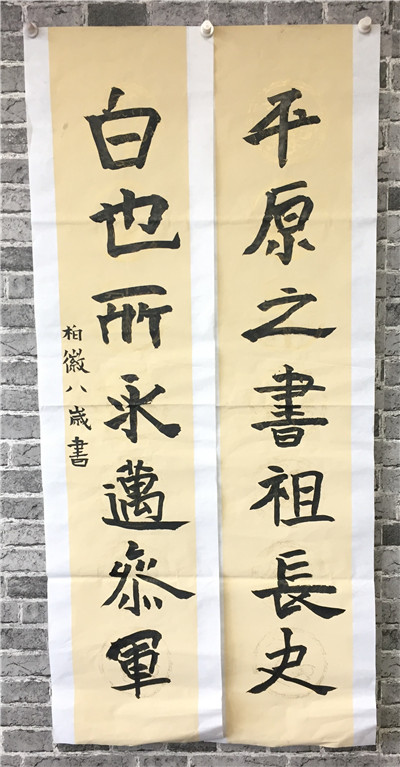 平原之書祖長史
白也所永邁叅軍
柏徽八歲書